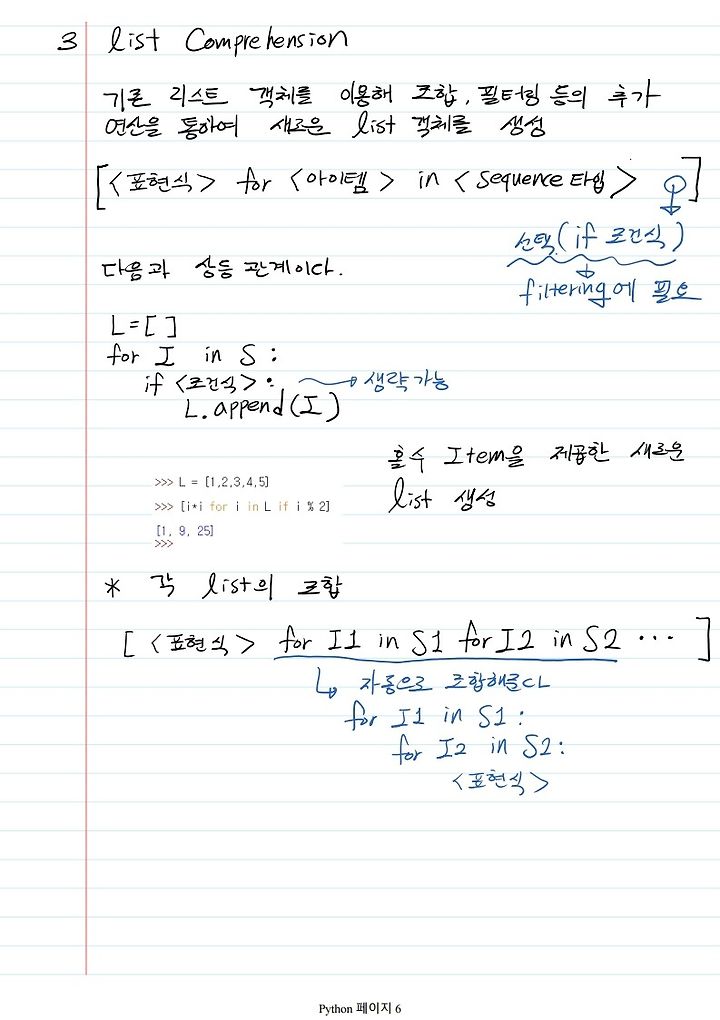 3 list Comprehension
기존 리스트 객체를 이용해 조합, 필터링 등의 추가
연산을 통하여 새로운 list 객체를 생성
[<표현식> for <아이템> in <sequence 타입> ]
선택(if 조건식)
filtering에 필요
다음과 상등 관계이다.
L=[ ]
for I in S :
if <조건식> : → 생략가능
L.append(I)
홀수 Item을 제곱한 새로운
list 생성
>>> L = [1,2,3,4,5]
>>> [i*i for i in L if i % 2]
[1, 9, 25]
>>>
* 각 list의 조합
[ <표현식> for I1 in S1 for I2 in S2 ··· ]
자동으로 조합해준다
for I1 in S1 :
for I2 in S2 :
<표현식>
Python 페이지 6